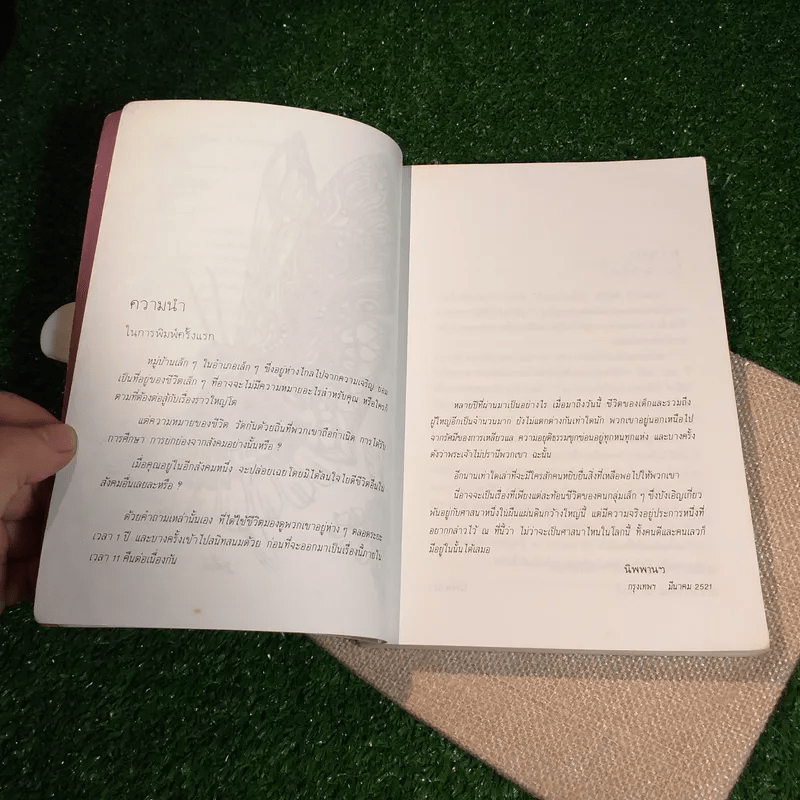 ความนำ
ในการพิมพ์ครั้งแรก
หมู่บ้านเล็ก ๆ ในอำเภอเล็ก ๆ ซึ่งอยู่ห่างไกลไปจากความเจริญ
เป็นที่อยู่ของชีวิตเล็ก ๆ ที่อาจจะไม่มีความหมายอะไรสำหรับคุณ หรือใครก็
ตามที่ต้องต่อสู้กับเรื่องราวใหญ่โต
แต่ความหมายของชีวิต รัดกันด้วยถิ่นที่พวกเขาถือกำเนิด การได้รับ
การศึกษา การยกย่องจากสังคมอย่างนั้นหรือ ฯ
เมื่อคุณอยู่ในอีกสังคมหนึ่ง จะปล่อยเฉยโดยมิได้สนใจไยดีชีวิตอื่นใน
สังคมอื่นเลยละหรือ ฯ
ด้วยคำถามเหล่านั้นเอง ที่ได้ใช้ชีวิตมองดูพวกเขาอยู่ห่าง ๆ ตลอดระยะ
เวลา 1 ปี และบางครั้งเข้าไปสนิทสนมด้วย ก่อนที่จะออกมาเป็นเรื่องนี้ภายใน
เวลา 11 คืนต่อเนื่องกัน
หลายปีที่ผ่านมาเป็นอย่างไร เมื่อมาถึงวันนี้ ชีวิตของเด็กและรวมถึง
ผู้ใหญ่อีกเป็นจำนวนมาก ยังไม่แตกต่างกันเท่าใดนัก พวกเขาอยู่นอกเหนือไป
จากรัศมีของการเหลียวแล ความอยุติธรรมซุกซ่อนอยู่ทุกหนทุกแห่ง และบางครั้ง
ดังราพระเจ้าไม่ปรานีพวกเขา ฉะนั้น
อีกนานเท่าใดเล่าที่จะมีใครสักคนหยิบยื่นสิ่งที่เหลือพอไปให้พวกเขา
นี่อาจจะเป็นเรื่องที่เพียงแต่สะท้อนชีวิตของคนกลุ่มเล็ก ๆ ซึ่งบังเอิญเกี่ยว
พันอยู่กับศาสนาหนึ่งในผืนแผ่นดินกว้างใหญ่นี้ แต่มีความจริงอยู่ประการหนึ่งที่
อยากกล่าวไว้ ณ ที่นี้ว่า ไม่ว่าจะเป็นศาสนาไหนในโลกนี้ ทั้งคนดีและคนเลวก็
มีอยู่ในนั้นได้เสมอ
นิพพานฯ
กรุงเทพฯ มีนาคม 2521